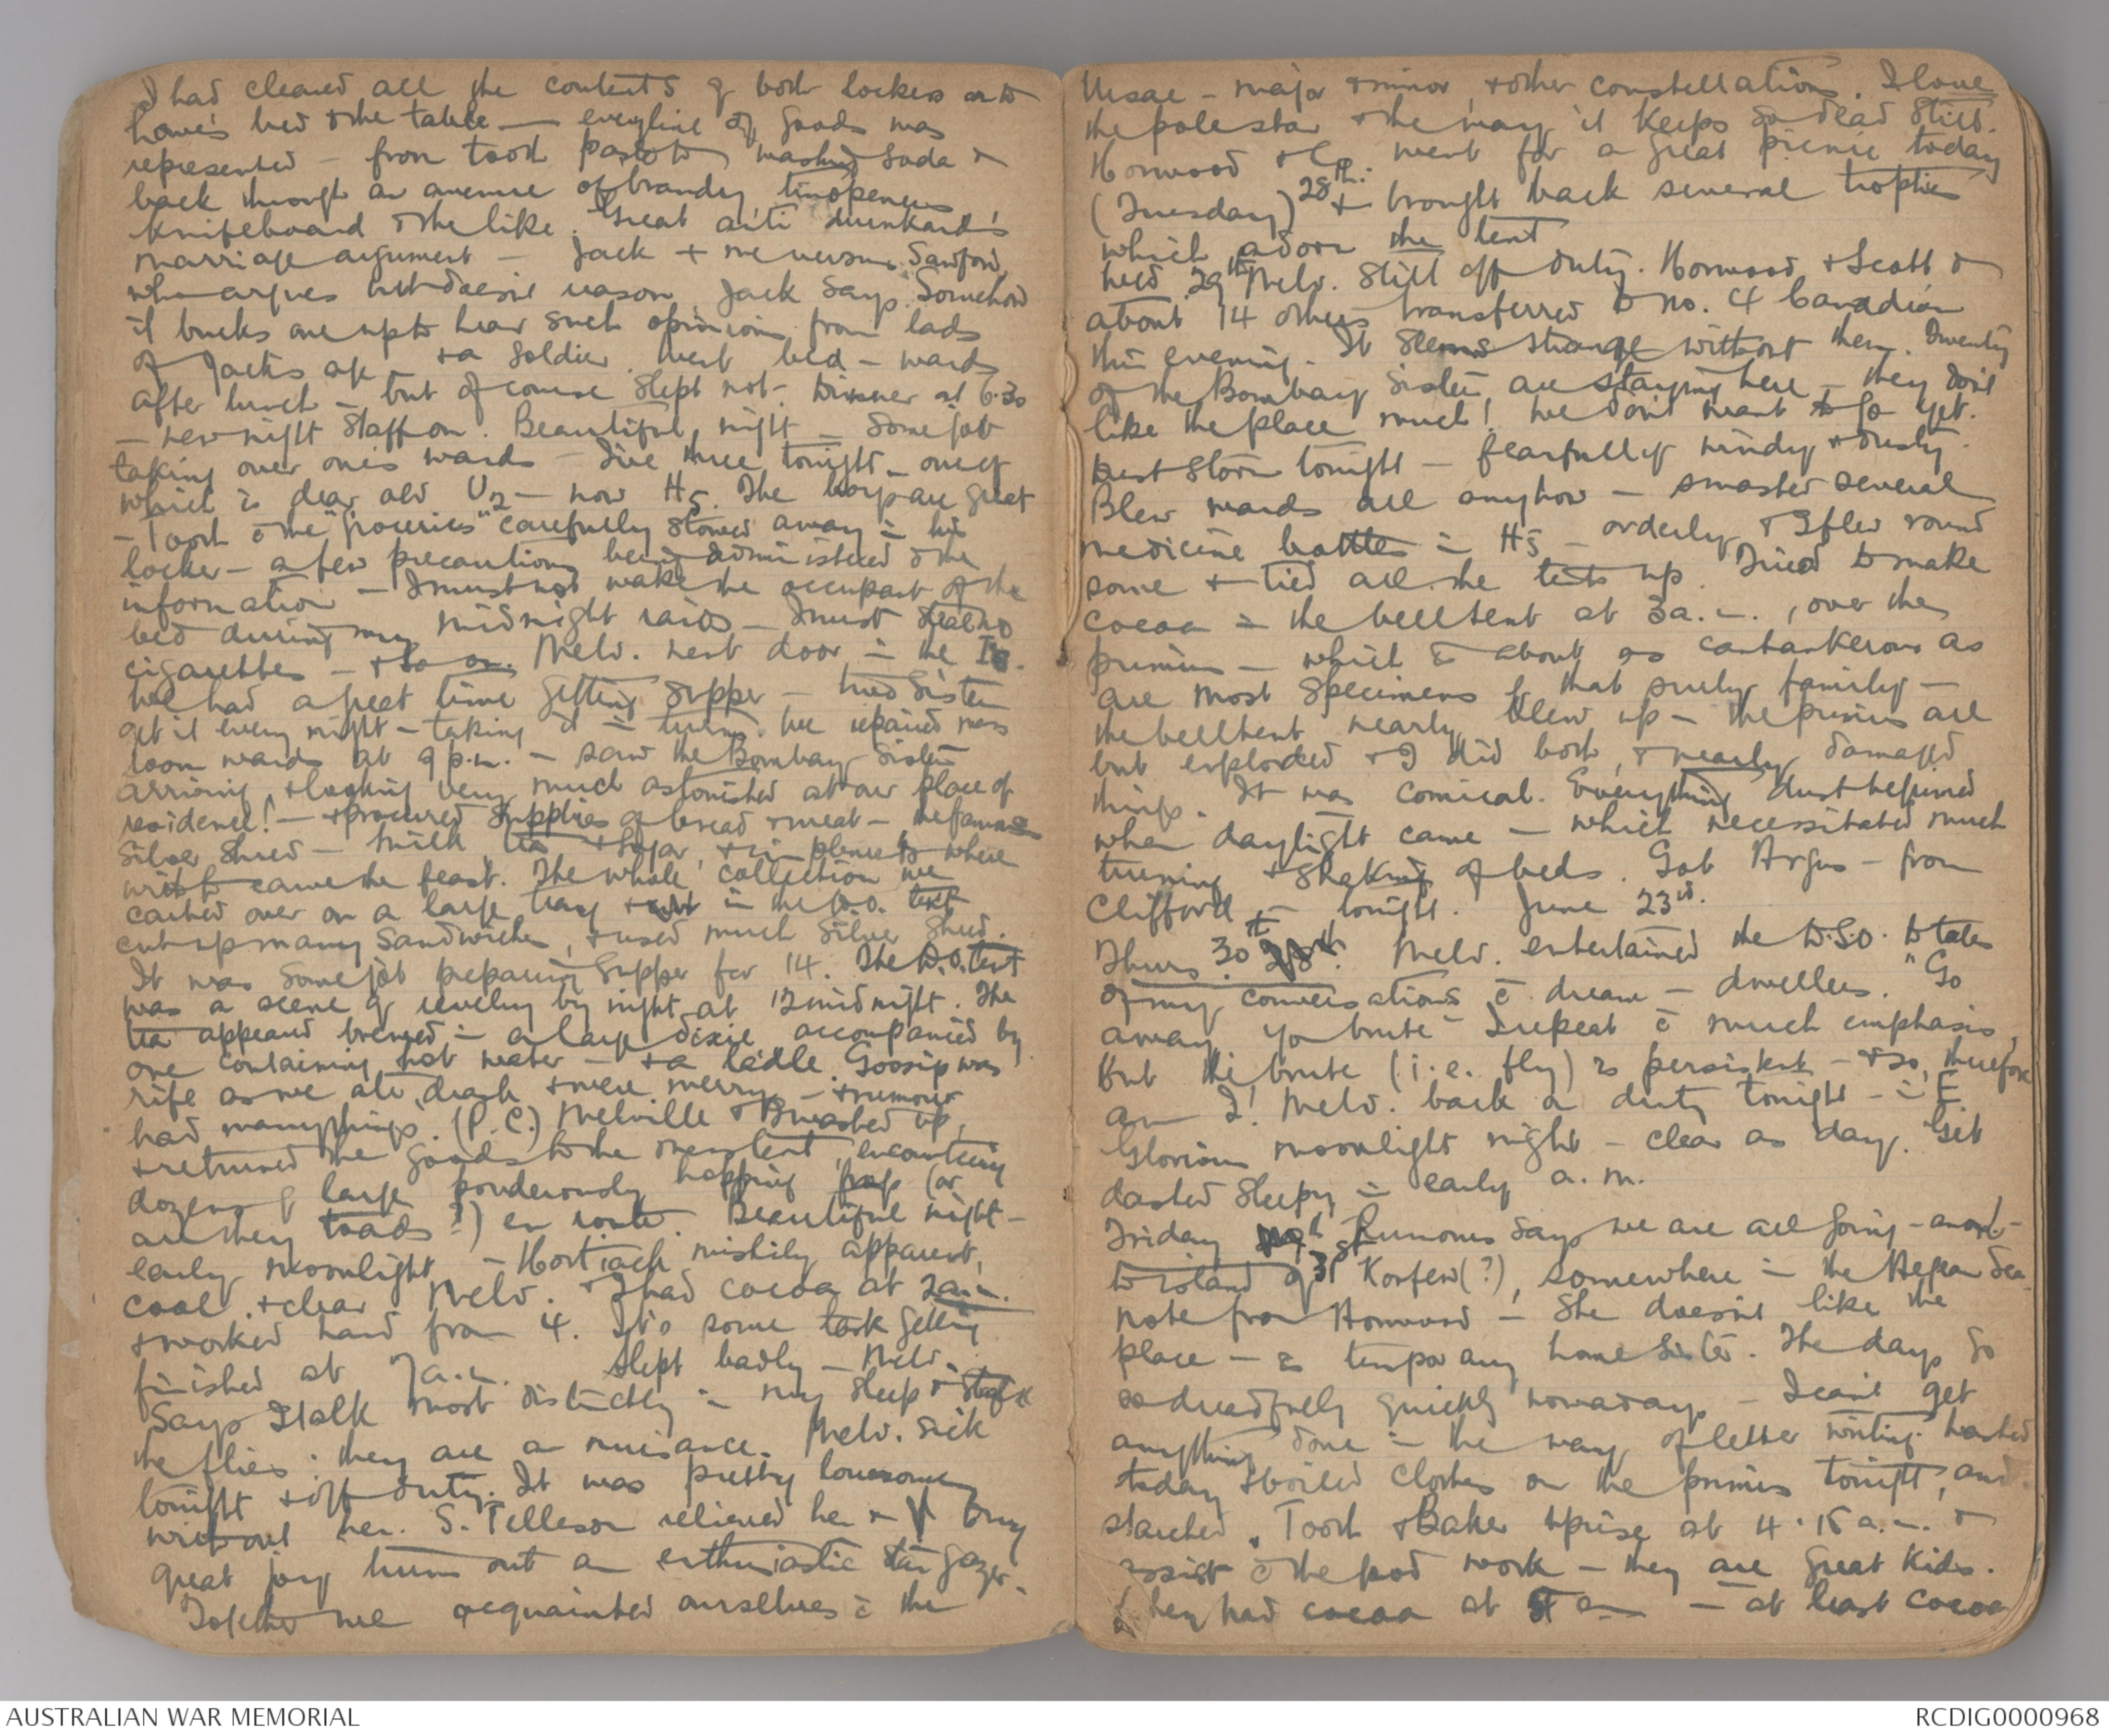 I had cleared all the contents of both lockers on to
bed & the table — every line of goods was
represented — from tooth paste to washing soda &
back through an avenue of brandy, tinopeners,
knifeboard & the like. Great anti drunkards
marriage argument — Jack & me versus Sanford,
who argues but doesnt reason, Jack says. Somehow
it bucks one up to hear such opinions from lads
of Jack's age & a soldier. Went bed-wards
after lunch — but of course slept not. Dinner at 6.30
— new night staff on. Beautiful night — some job
taking over ones wards — I've three tonight — one of
which is dear old U2 — now H5. The boys are great
— Tooth c̄ the "groceries" carefully stowed away in his
locker — a few precautions being administered c̄ the
information — I must not wake the occupant of the
bed during my midnight raids — I must steal no
cigarettes — & so on. Melv. next door in the
We had a great time getting supper — two Sisters
get it every night — taking it in turns. We repaired mess
room wards at 9 p.m. — saw the Bombay Sisters
arriving, & looking very much astonished at our place of
residence! — & procured supplies of bread & meat — the famous
silver shred — milk tea & sugar, & implements where
with to carve the feast. The whole collection we
carted over on a large tray & in the D.O. tent
cut up many sandwiches, & used much Silver Shred.
It was some job preparing supper for 14. The D.O. tent
was a scene of revelry by night at 12 midnight. The
tea appeared brewed in a large dixie accompanied by
one containing hot water — & a ladle. Gossip was
rife as we ate, drank & were merry — & rumour
had many things. (P.C.) Melville & I washed up,
& returned the goods to the mess tent, encountering
dozens of large ponderously hopping frogs (or
are they toads?) en route. Beautiful night —
early moonlight — Hortiach mistily apparent,
cool & clear. Melv. & I had cocoa at 2 a.m.
& worked hard from 4. It's some task getting
finished at 7 a.m. Slept badly — Melv.
says I talk most distinctly in my sleep &
the flies: they are a nuisance. Melv. sick
tonight & off duty. It was pretty lonesome
without her. S. Telleson relieved her & to my
great joy turns out an enthusiastic star gazer.
Together we acquainted ourselves c̄ the
Ursae — major & minor, & other constellations. I love
the pole star & the way it keeps so dead still.
Horwood & Co. went for a great picnic today
(Tuesday) 28th. & brought back several trophies
which adorn the tent
Wed 29th Melv. still off duty. Horwood & Scott &
about 14 others transferred to no. 4 Canadian
this evening. It seems strange without them. Twenty
of the Bombay Sisters are staying here — they don't
like the place much! We don't want to go yet.
Dust storm tonight — fearfully windy & dusty.
Blew wards all anyhow — smashed several
medicine bottles in H5 — orderly & I flew round
some & tied all the tents up. Tried to make
cocoa in the belltent at 3 a.m., over the
primus — which is about as cantankerous as
are most specimens of that surly family —
the belltent nearly blew up — the primus all
but exploded & I did both, & nearly damaged
things. It was comical. Everything dust begrimed
when daylight came — which necessitated much
turning & shaking of beds. Got Argus — from
Clifford — tonight. June 23rd.
Thurs 30th 28th. Melv. entertained the D.S.O. to tales
of my conversations c̄ dream-dwellers. "Go
away yo brute" I repeat c̄ much emphasis,
but the brute (i.e. fly) is persistent — & so, therefore
am I! Melv. back on duty tonight — in E.
Glorious moonlight night — clear as day. Get
dashed sleepy in early a.m.
Friday 31st Rumour says we are all going — anon —
to island of Korfew (?), somewhere in the Aegean Sea
note from Horwood — She doesnt like the
place — is temporary home Sister. The days go
so dreadfully quickly nowadays — I can't get
anything done in the way of letter writing. Washed
today & boiled clothes on the primus tonight, and
starched. Tooth & Baker uprise at 4.15 a.m. &
assist c̄ the good work — they are great kids.
They had cocoa at 5 am — at least cocoa
AUSTRALIAN WAR MEMORIAL
RCDIG0000968